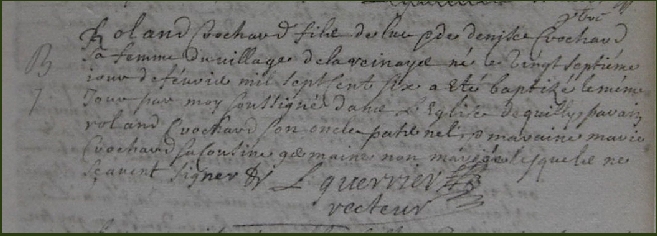 Roland Crochard fils de luc & de denise Crochard
sa femme du village de la veinaye né le vingt septiéme
iour de féurie mil sept cent six a eté baptizé le méme
B
iour par moy soussigné dans l'Eglise de quilly parain
roland Crochard son oncle paternel, & maraine marie
Crochard sa cousine gemaine non mariée lesquels ne
sçavent signer
L guerrier
recteur